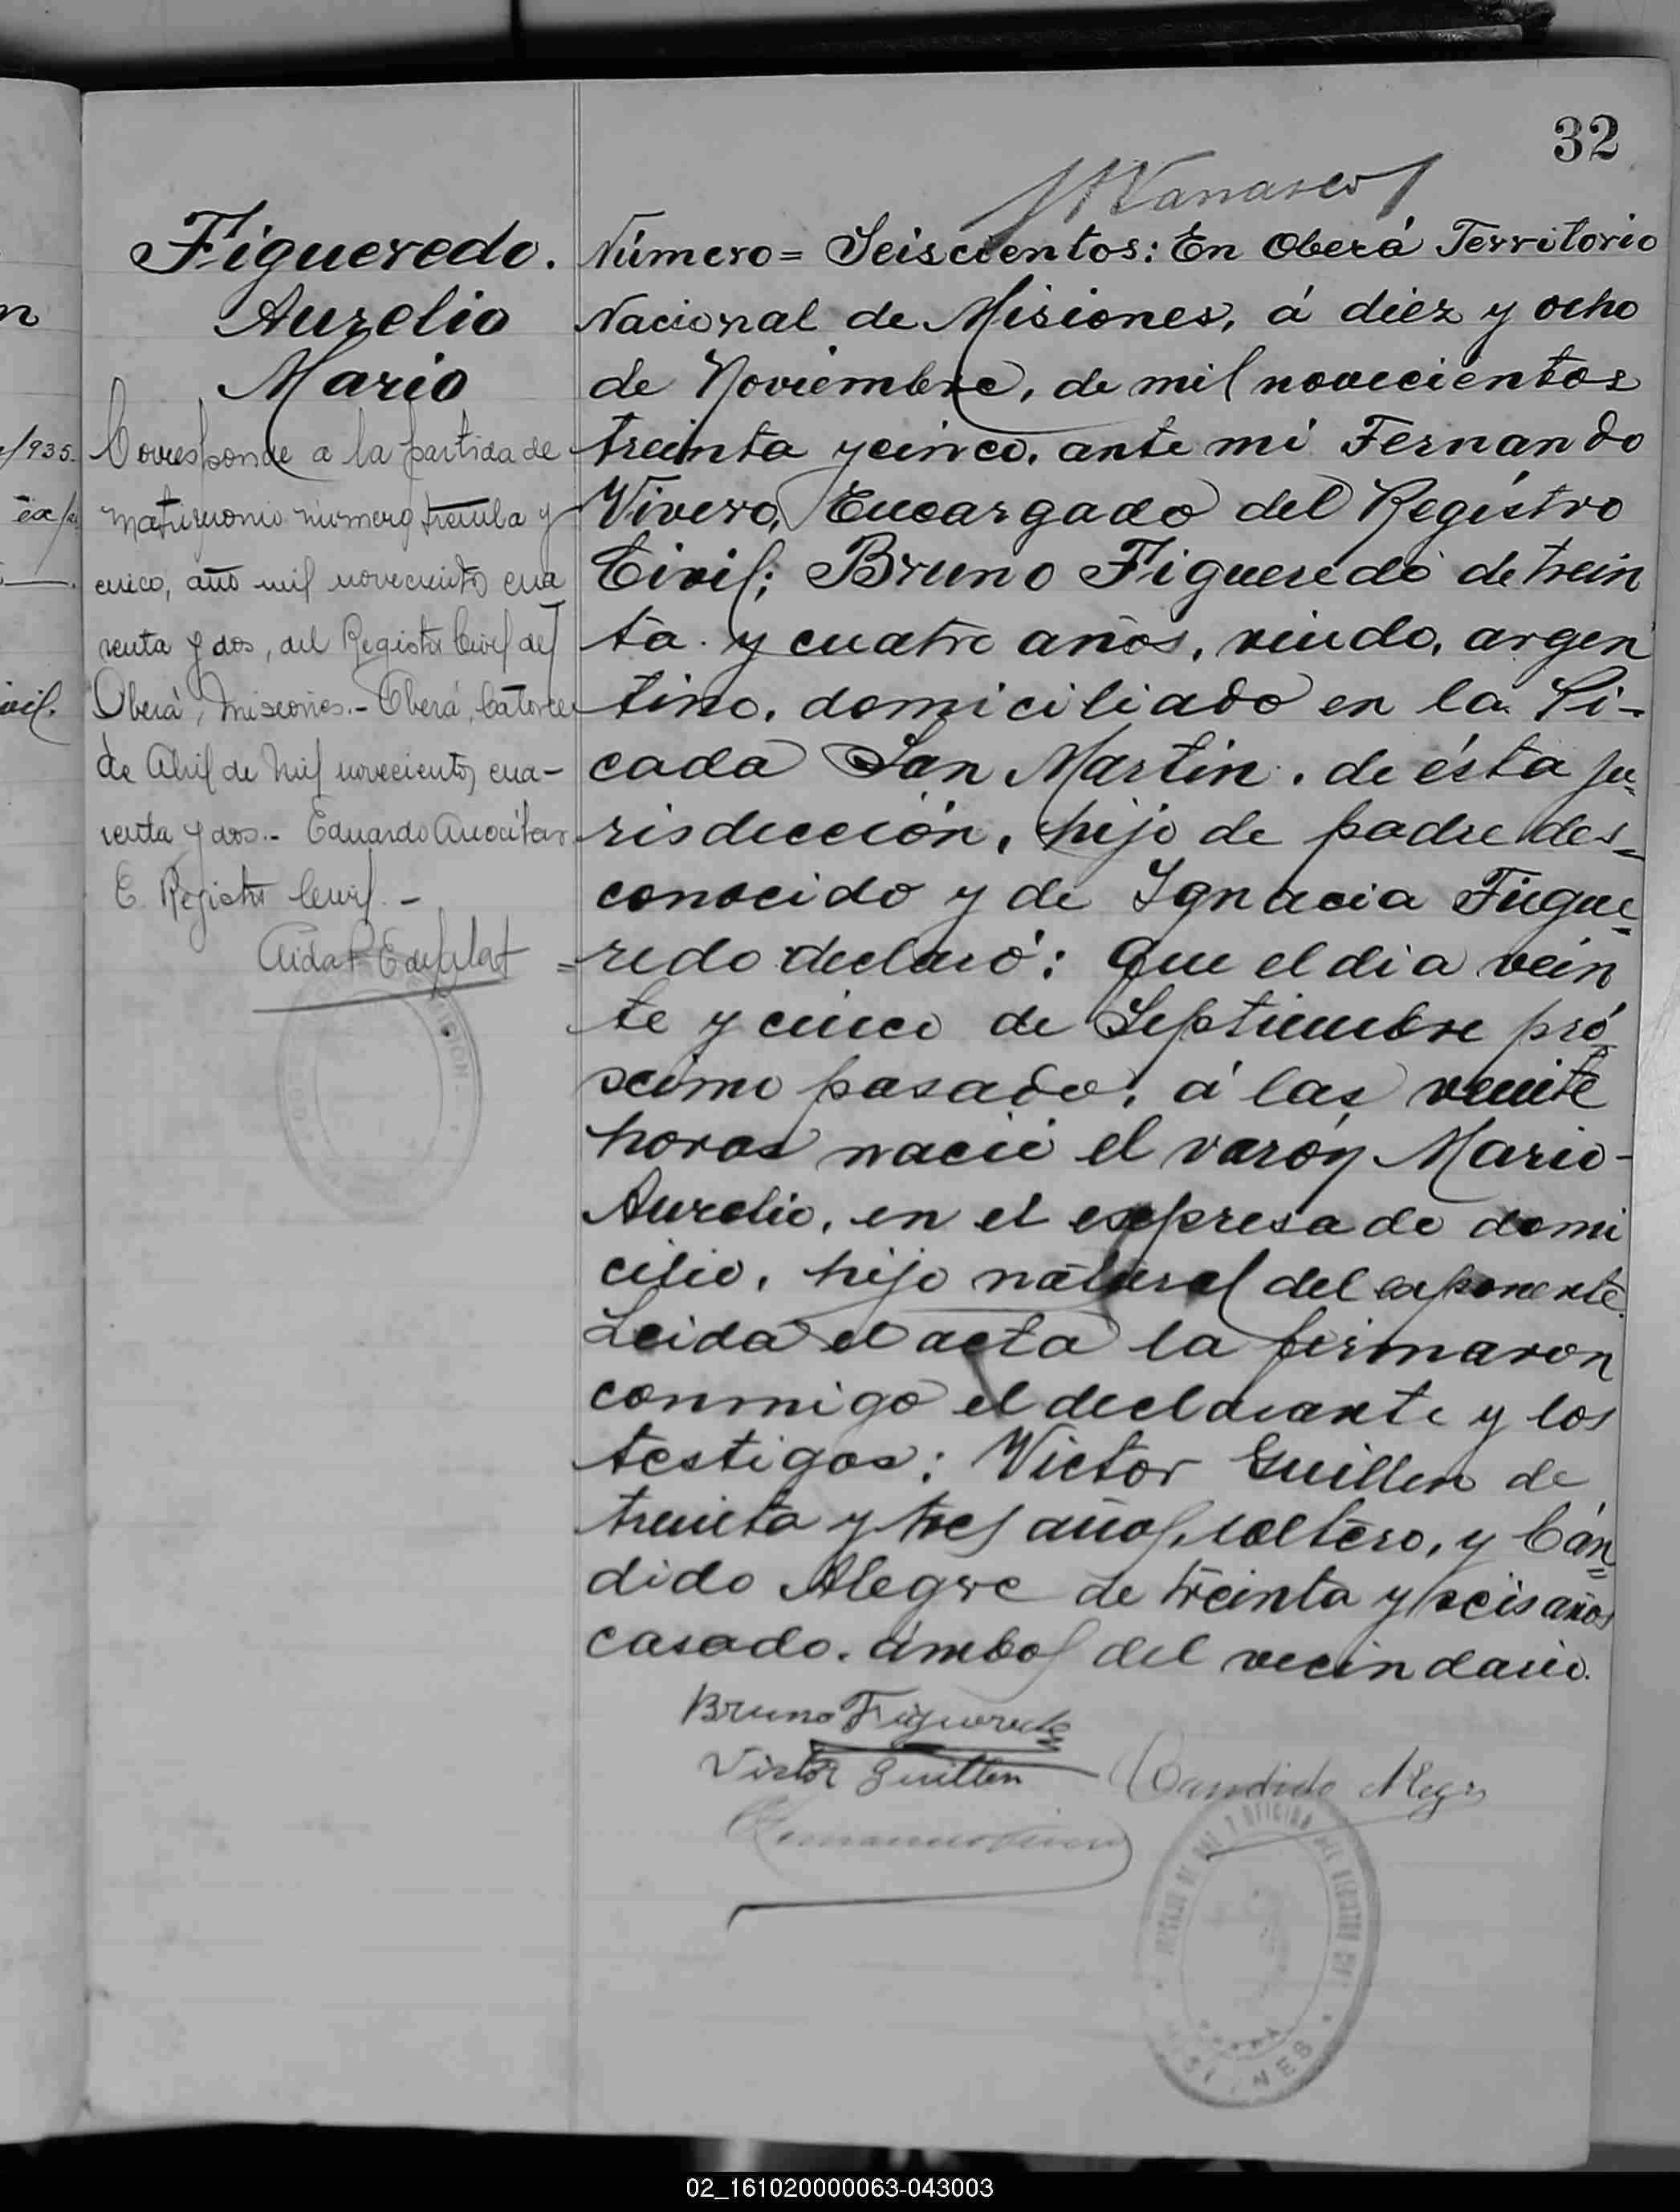 32
Figueredo.
Aurelio
Mario
Corresponde a la partida de
matrimonio número treinta y
cinco, año mil novecientos cua
renta y dos, del Registro Civil de
Oberá, Misiones.- Oberá, Catorce
de Abril de mil novecientos cua-
renta y dos.- Eduardo
E. Registro Civil.-
Número= Seiscientos: En Oberá Territorio
Nacional de Misiones, á diez y ocho
de Noviembre, de mil novecientos
treinta y cinco, ante mi Fernando
Vivero, Encargado del Registro
Civil; Bruno Figueredo de trein
ta y cuatro años, viudo, argen
tino, domiciliado en la Pi-
cada San Martin, de ésta ju=
risdección, hijo de padre des=
conocido y de Ignacia Figue=
=redo declaró: Que el dia vein
te y cinco de Septiembre pró
ximo pasado, á las veinte
horas nació el varón Mario-
Aurelio, en el expresado domi
cilio, hijo natural del exponente.
Leida el acta la firmaron
conmigo el declarante y los
testigos: Victor Guillen de
treinta y tres años, soltero, y Cán=
dido Alegre de treinta y seis años
casado. ámbos del vecindario.
Bruno Figueredo
Victor Guillen
Candido Alegre
MISIONES
02_161020000063-043003